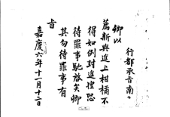 行部承旨南
卿以
薦新與進上柑橘不
得如例封進惶恐
待罪事馳啓矣卿
其勿待罪事有
旨
嘉慶六年十一月十二日